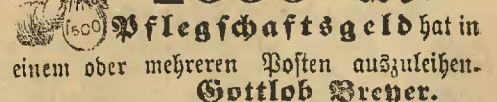 500 Pflegſchaftsgeld hat in
einem oder mehreren Poſten auszuleihen.
Gottlob Breyer.